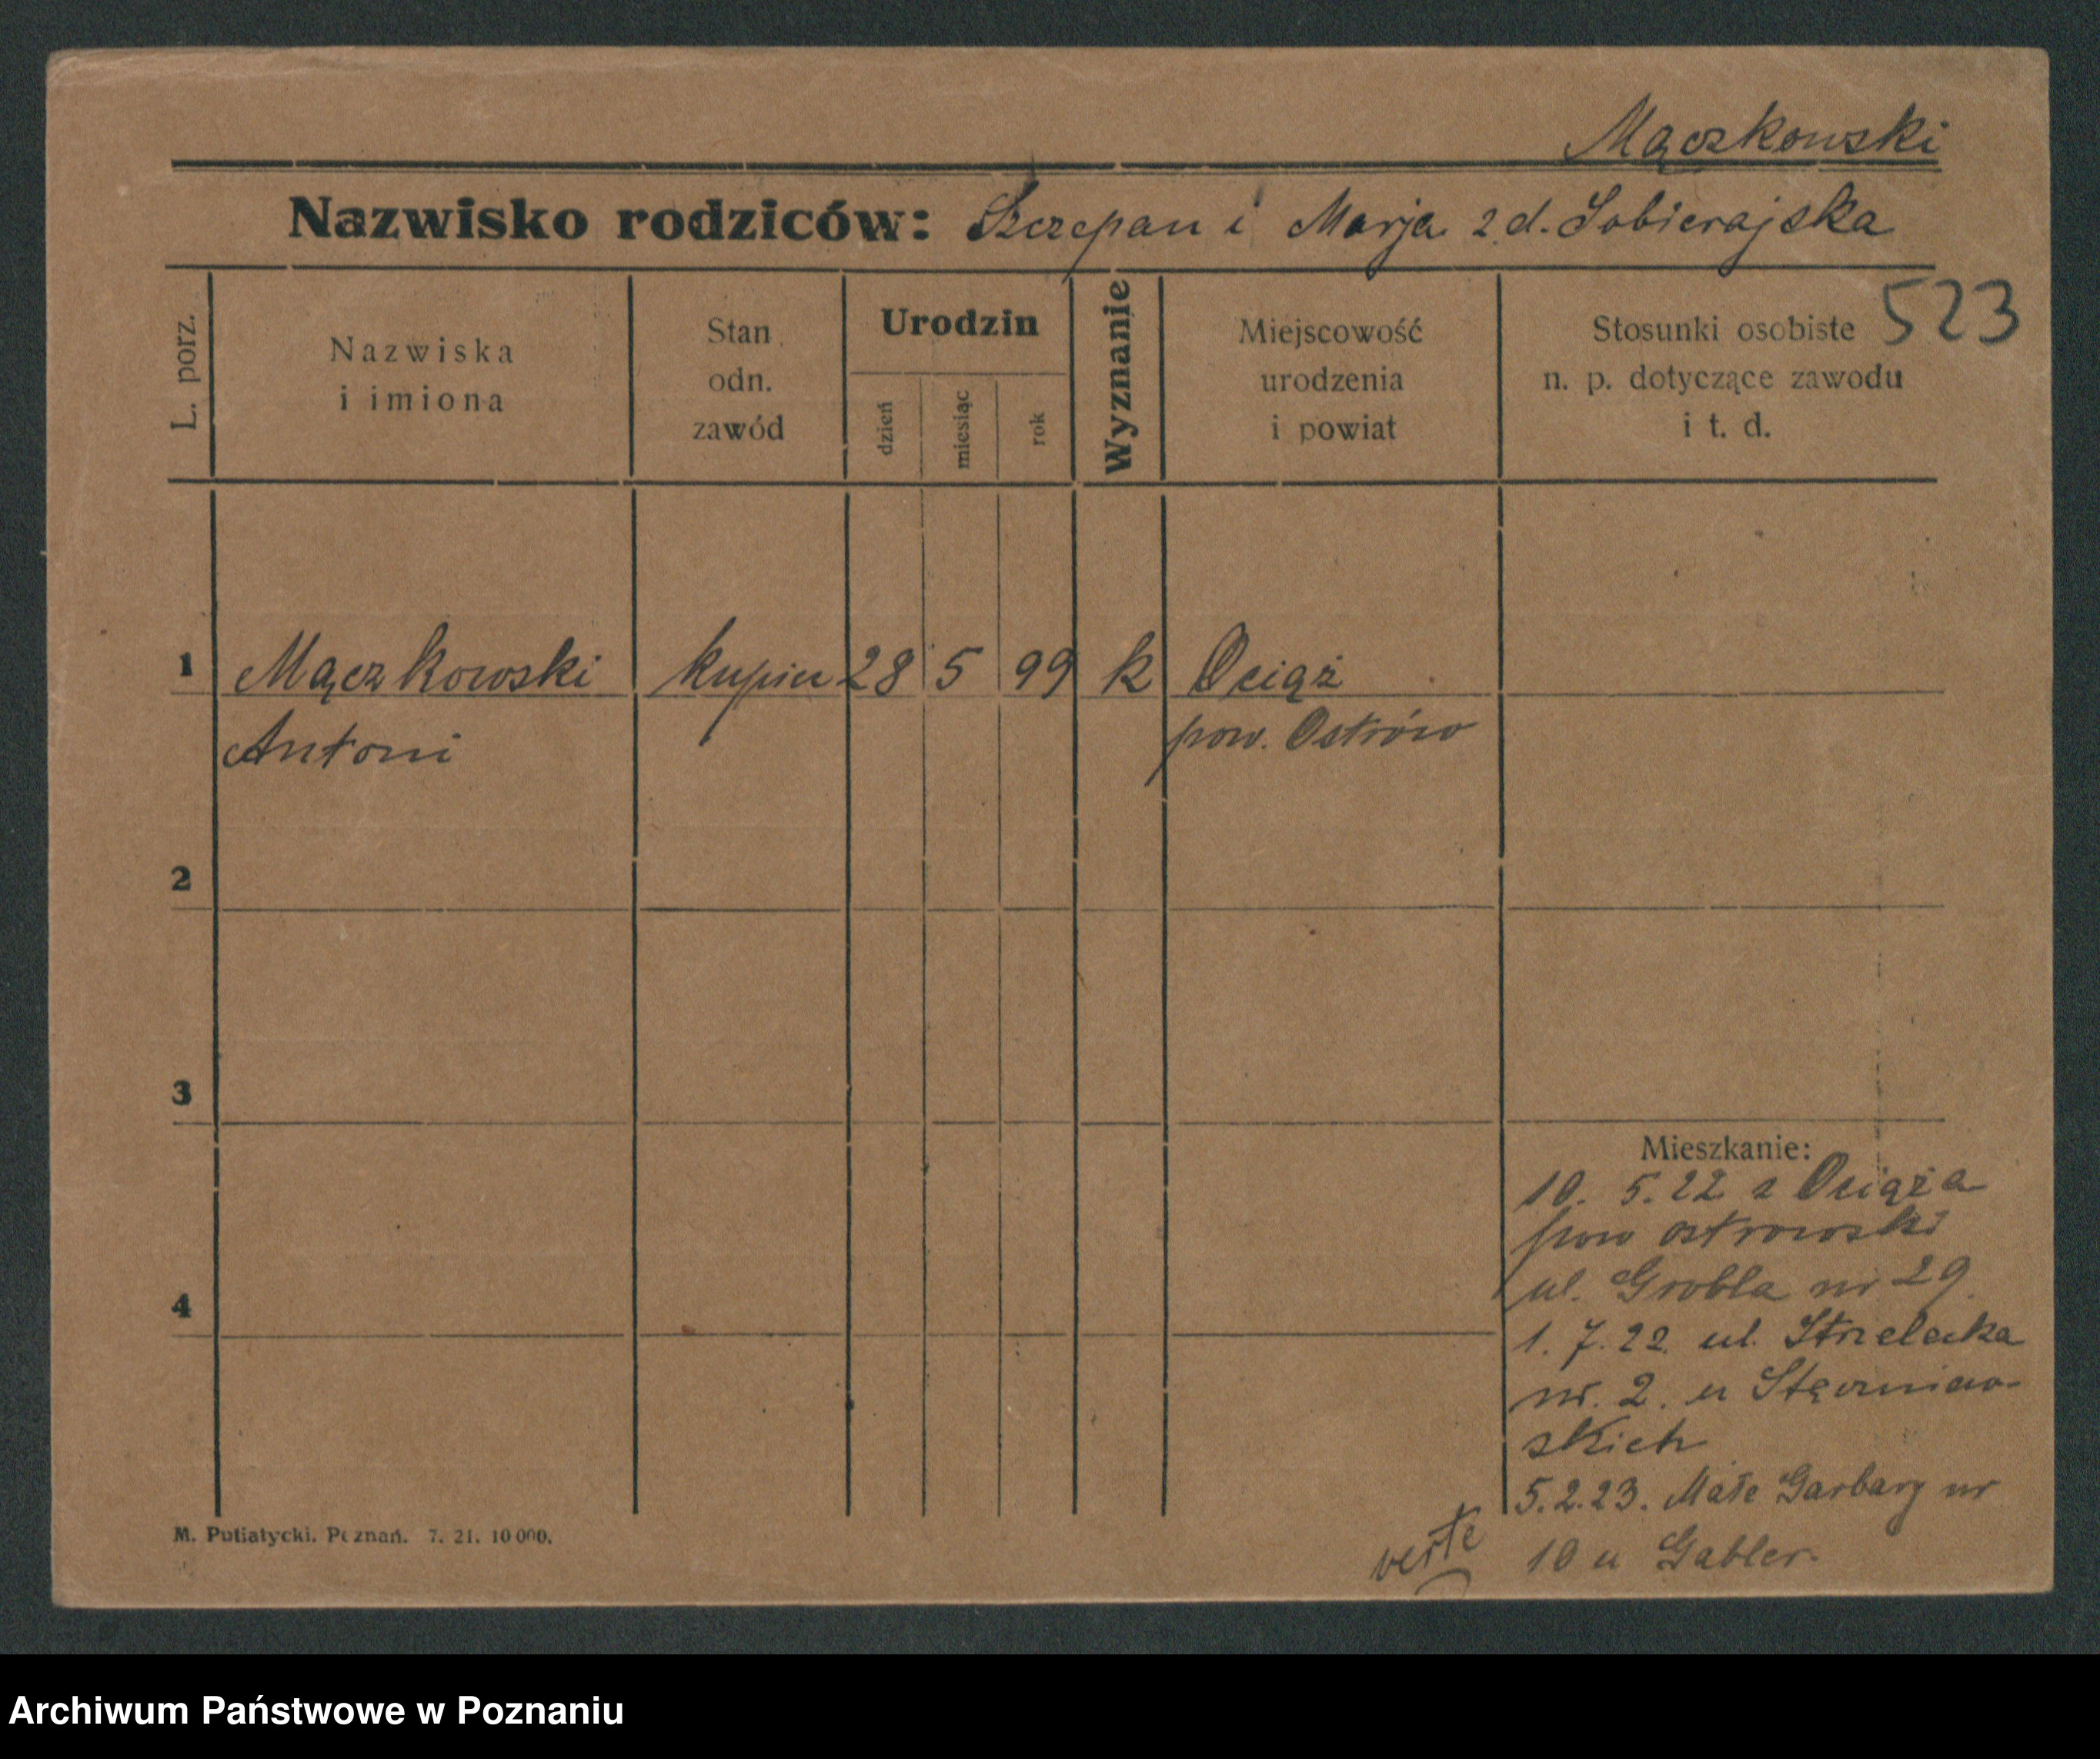 Mączkowski
Nazwisko rodziców: Szczepan i Marja z d. Sobierajska
523
L. porz.
Nazwiska
i imiona
Stan
odn.
zawód
Urodzin
dzień
miesiąc
rok
Wyznanie
Miejscowość
urodzenia
i powiat
Stosunki osobiste
n. p. dotyczące zawodu
i t. d.
1 Mączkowski kupiec 28 5 99 k Ociąż
Antoni pow. Ostrów
2
3
4
Mieszkanie:
10. 5. 22 z Ociąża
pow ostrowski
ul. Grobla nr 29.
1. 7. 22. ul. Strzelecka
nr. 2. u
skich
5. 2. 23. Małe Garbary nr
10 u Gabler.
verte
M. Putiatycki. Poznań. 7. 21. 10 000.
Archiwum Państwowe w Poznaniu